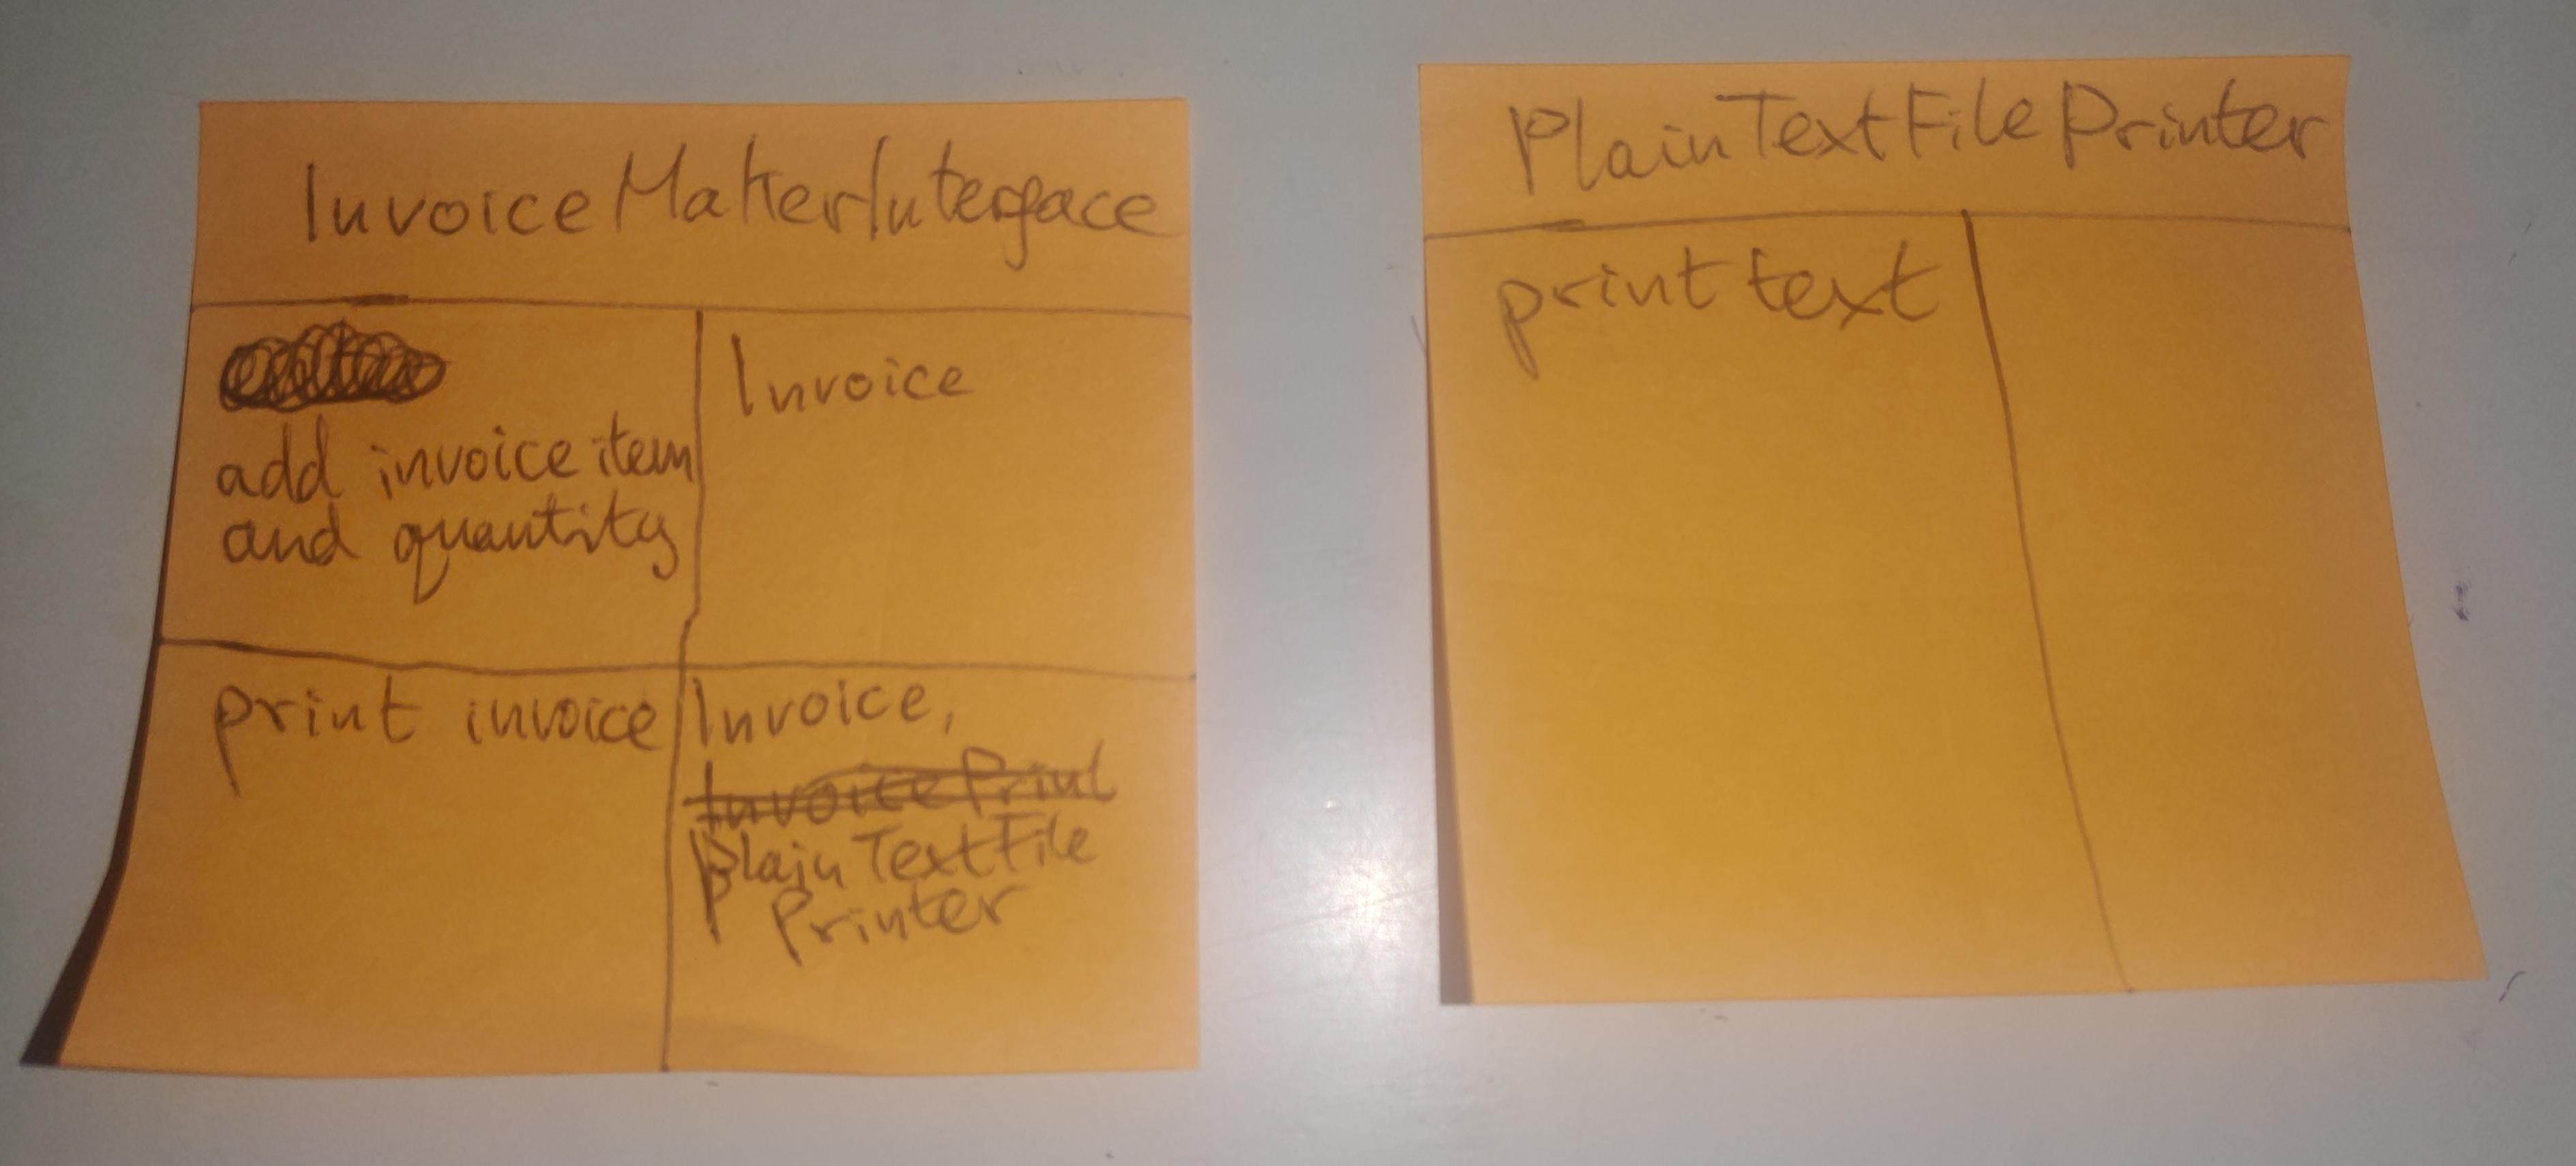 InvoiceMakerInterface
add invoice item
and quantity
Invoice
print invoice
Invoice,
InvoicePrint
PlainTextFile
Printer
PlainTextFilePrinter
print text